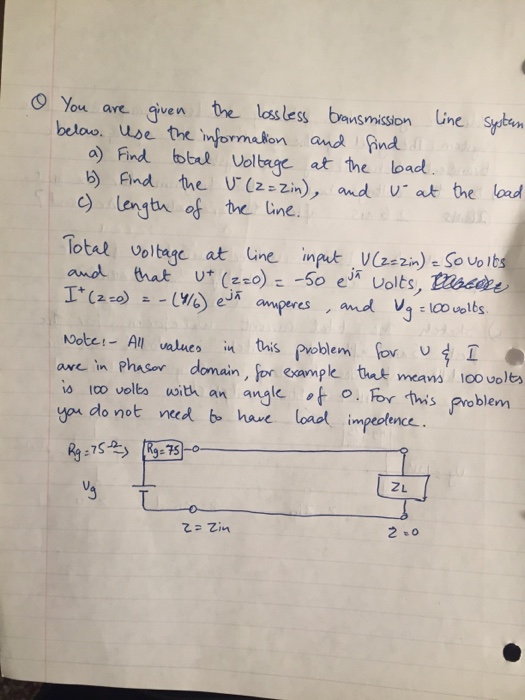 Q You are given the lossless transmission line system
below. Use the information and find
a) Find total voltage at the load.
b) Find the V⁻(z=zin), and V⁻ at the load
c) length of the line.
Total voltage at line input V(z=zin) = 50 volts
and that V⁺(z=0) = -50 e^jπ volts,
I⁺(z=0) = -(4/6) e^jπ amperes, and Vg = 100 volts.
Note:- All values in this problem for V & I
are in phasor domain, for example that means 100 volts
is 100 volts with an angle of 0. For this problem
you do not need to have load impedence.
Rg=75Ω → Rg=75
Vg
ZL
z = zin z=0